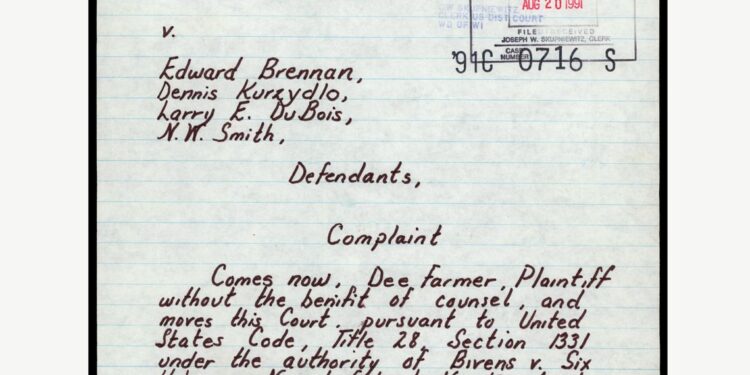 AUG 20 1991
CLERK US DIST COURT
WD OF WI
FILED/RECEIVED
JOSEPH W. SKUPNIEWITZ, CLERK
CASE
NUMBER
'91C 0716 S
v.
Edward Brennan,
Dennis Kurzydlo,
Larry E. DuBois,
N.W. Smith,
Defendants,
Complaint
Comes now, Dee Farmer, Plaintiff
without the benifit of counsel, and
moves this Court pursuant to United
States Code, Title 28, Section 1331
under the authority of Bivens v. Six